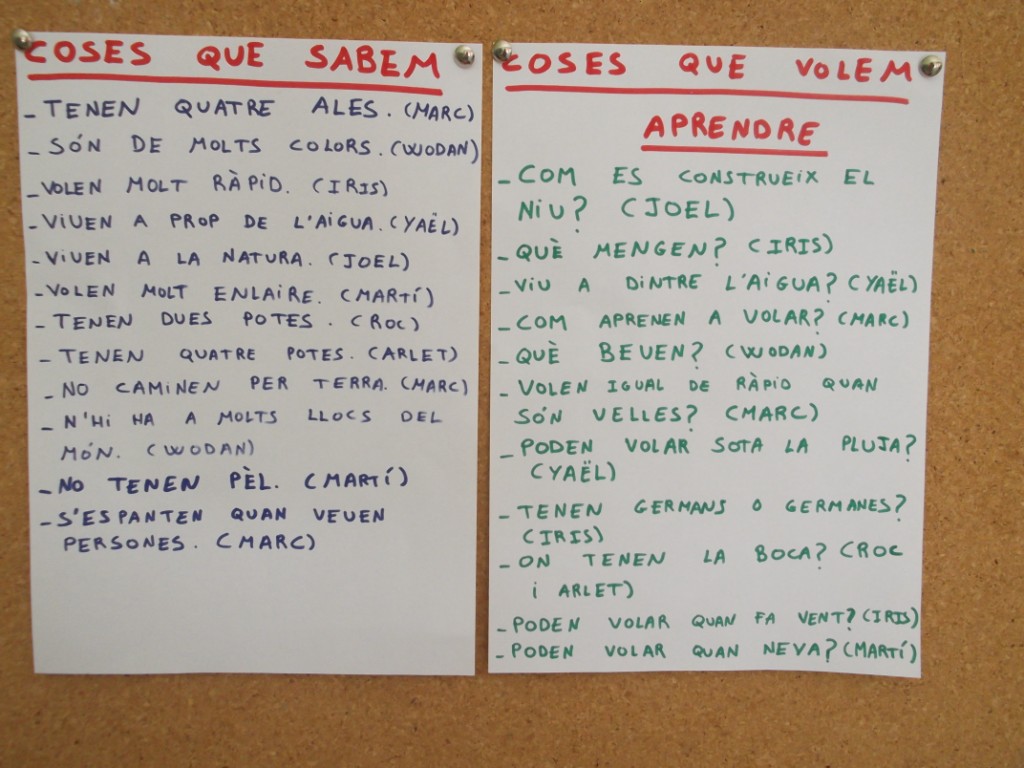 COSES QUE SABEM
- TENEN QUATRE ALES. (MARC)
- SÓN DE MOLTS COLORS. (WODAN)
- VOLEN MOLT RÀPID. (IRIS)
- VIUEN A PROP DE L'AIGUA. (YAËL)
- VIUEN A LA NATURA. (JOEL)
- VOLEN MOLT ENLAIRE. (MARTÍ)
- TENEN DUES POTES. (ROC)
- TENEN QUATRE POTES. (ARLET)
- NO CAMINEN PER TERRA. (MARC)
- N'HI HA A MOLTS LLOCS DEL
MÓN. (WODAN)
- NO TENEN PÈL. (MARTÍ)
- S'ESPANTEN QUAN VEUEN
PERSONES. (MARC)
COSES QUE VOLEM
APRENDRE
- COM ES CONSTRUEIX EL
NIU? (JOEL)
- QUÈ MENGEN? (IRIS)
- VIU A DINTRE L'AIGUA? (YAËL)
- COM APRENEN A VOLAR? (MARC)
- QUÈ BEVEN? (WODAN)
- VOLEN IGUAL DE RÀPID QUAN
SÓN VELLES? (MARC)
- PODEN VOLAR SOTA LA PLUJA?
(YAËL)
- TENEN GERMANS O GERMANES?
(IRIS)
- ON TENEN LA BOCA? (ROC
I ARLET)
- PODEN VOLAR QUAN FA VENT? (IRIS)
- PODEN VOLAR QUAN NEVA? (MARTÍ)